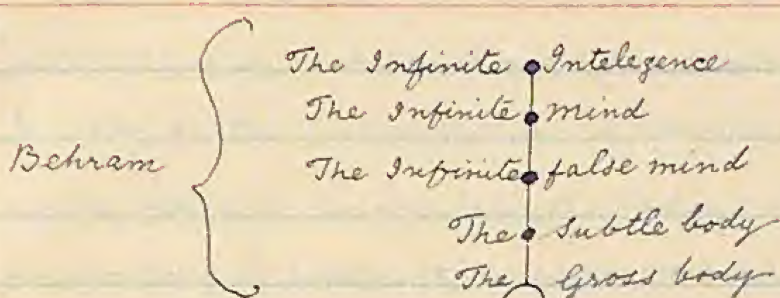 The Infinite Intelegence
The Infinite mind
Behram
The Infinite false mind
The Subtle body
The Gross body